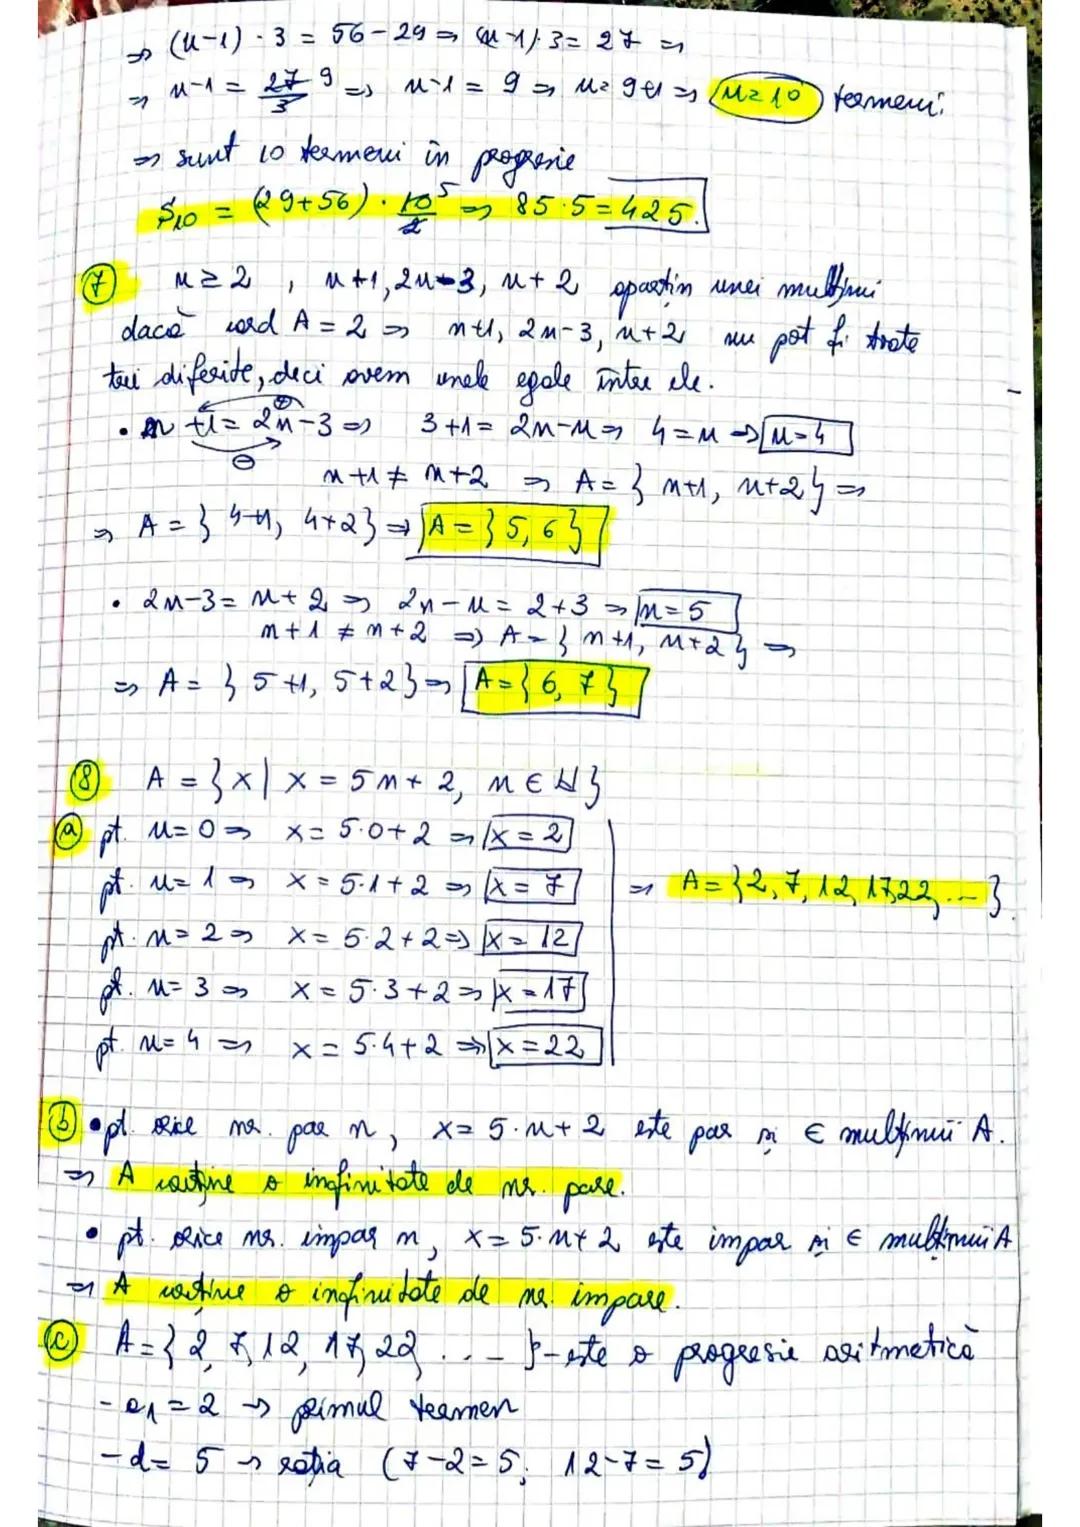 ⇒ (n-1) · 3 = 56-29 ⇒ (n-1)·3 = 27 ⇒
⇒ n-1 = 27/3 9 ⇒ n-1 = 9 ⇒ n = 9+1 ⇒ n = 10 termeni.
⇒ sunt 10 termeni în progresie
S10 = (29+56) · 10/2 5 ⇒ 85·5 = 425.
⑦ n ≥ 2, n+1, 2n-3, n+2 aparțin unei mulțimi
dacă card A = 2 ⇒ n+1, 2n-3, n+2 nu pot fi toate
trei diferite, deci avem unele egale între ele.
• n+1 = 2n-3 ⇒ 3+1 = 2n-n ⇒ 4 = n ⇒ n=4
n+1 ≠ n+2 ⇒ A = { n+1, n+2 } ⇒
⇒ A = { 4+1, 4+2 } ⇒ A = { 5, 6 }
• 2n-3 = n+2 ⇒ 2n-n = 2+3 ⇒ n=5
n+1 ≠ n+2 ⇒ A = { n+1, n+2 } ⇒
⇒ A = { 5+1, 5+2 } ⇒ A = { 6, 7 }
⑧ A = { x | x = 5n+2, n ∈ N }
ⓐ pt. n=0 ⇒ x = 5·0+2 ⇒ x = 2
pt. n=1 ⇒ x = 5·1+2 ⇒ x = 7 ⇒ A = { 2, 7, 12, 17, 22, ... }.
pt. n=2 ⇒ x = 5·2+2 ⇒ x = 12
pt. n=3 ⇒ x = 5·3+2 ⇒ x = 17
pt. n=4 ⇒ x = 5·4+2 ⇒ x = 22
ⓑ • pt. orice nr. par n, x = 5·n+2 este par și ∈ mulțimii A.
⇒ A conține o infinitate de nr. pare.
• pt. orice nr. impar n, x = 5·n+2 este impar și ∈ mulțimii A
⇒ A conține o infinitate de nr. impare.
ⓒ A = { 2, 7, 12, 17, 22 ... } - este o progresie aritmetică
- a1 = 2 → primul termen
- d = 5 → rația (7-2=5; 12-7=5)